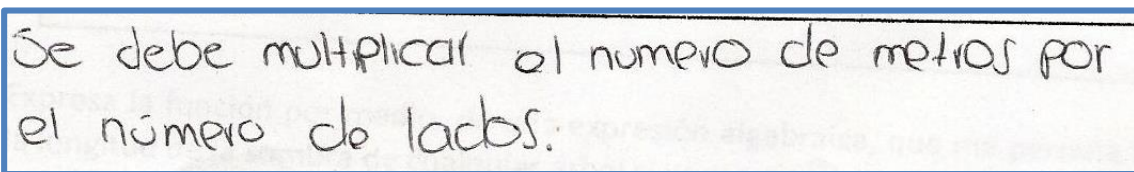 Se debe multiplicar el numero de metros por
el número de lados.